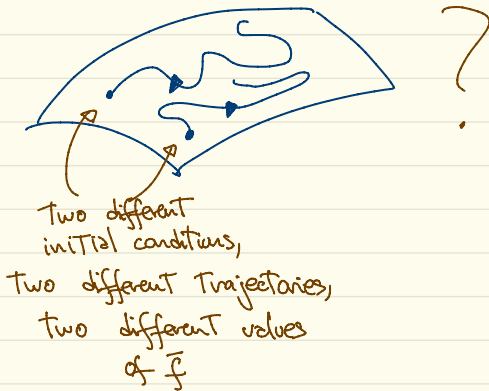 ?
Two different
initial conditions,
Two different Trajectories,
Two different values
of f̄